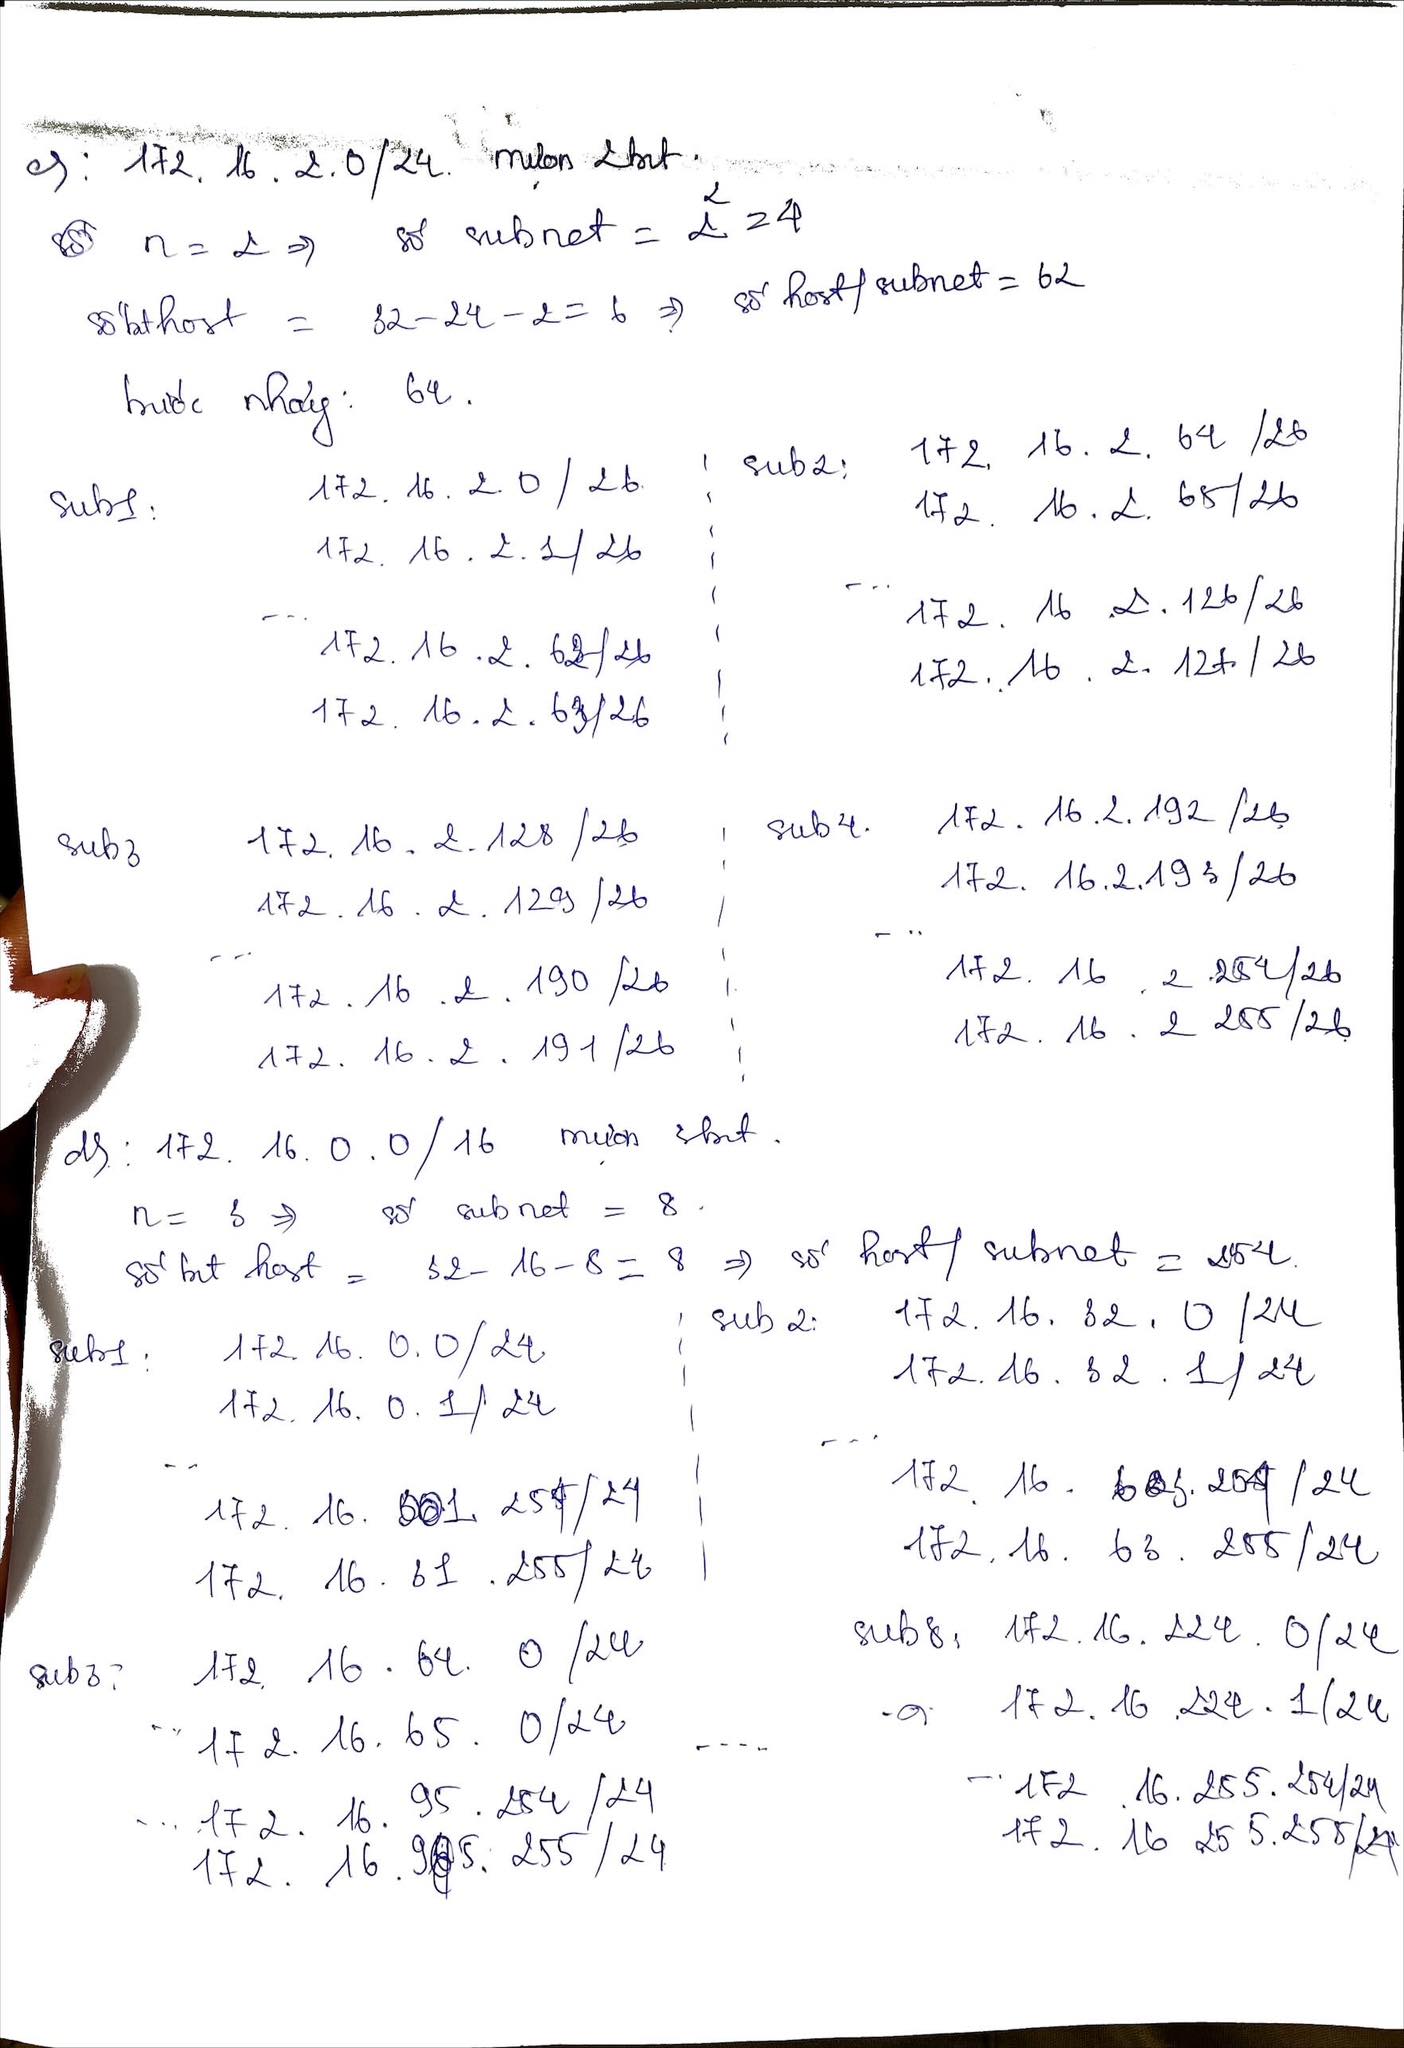 c): 172. 16. 2. 0/24. mượn 2 bit.
n = 2 => số subnet = 2² = 4
số bit host = 32 - 24 - 2 = 6 => số host/subnet = 62
bước nhảy: 64.
sub1: 172. 16. 2. 0 / 26
172. 16. 2. 1/ 26
...
172. 16. 2. 62/26
172. 16. 2. 63/26
sub2: 172. 16. 2. 64 /26
172. 16. 2. 65/26
...
172. 16 2. 126/26
172. 16. 2. 127/26
sub3 172. 16. 2. 128 /26
172. 16. 2. 129 /26
...
172. 16. 2. 190 /26
172. 16. 2. 191 /26
sub4. 172. 16. 2. 192 /26
172. 16. 2. 193/26
...
172. 16. 2 254/26
172. 16. 2 255 /26
d): 172. 16. 0. 0/16 mượn 3 bit.
n = 3 => số subnet = 8.
số bit host = 32 - 16 - 8 = 8 => số host/ subnet = 254.
sub1: 172. 16. 0. 0/24
172. 16. 0. 1/ 24
...
172. 16. 254/24
172. 16. 31. 255/24
sub2: 172. 16. 32. 0 /24
172. 16. 32. 1/ 24
...
172. 16. 254 /24
172. 16. 63. 255/24
sub3: 172. 16. 64. 0 /24
... 172. 16. 65. 0/24
... 172. 16. 95. 254 /24
172. 16. 95. 255 /24
....
sub8: 172. 16. 224. 0/24
172. 16 224. 1/24
... 172 16. 255. 254/24
172. 16 255. 255/24